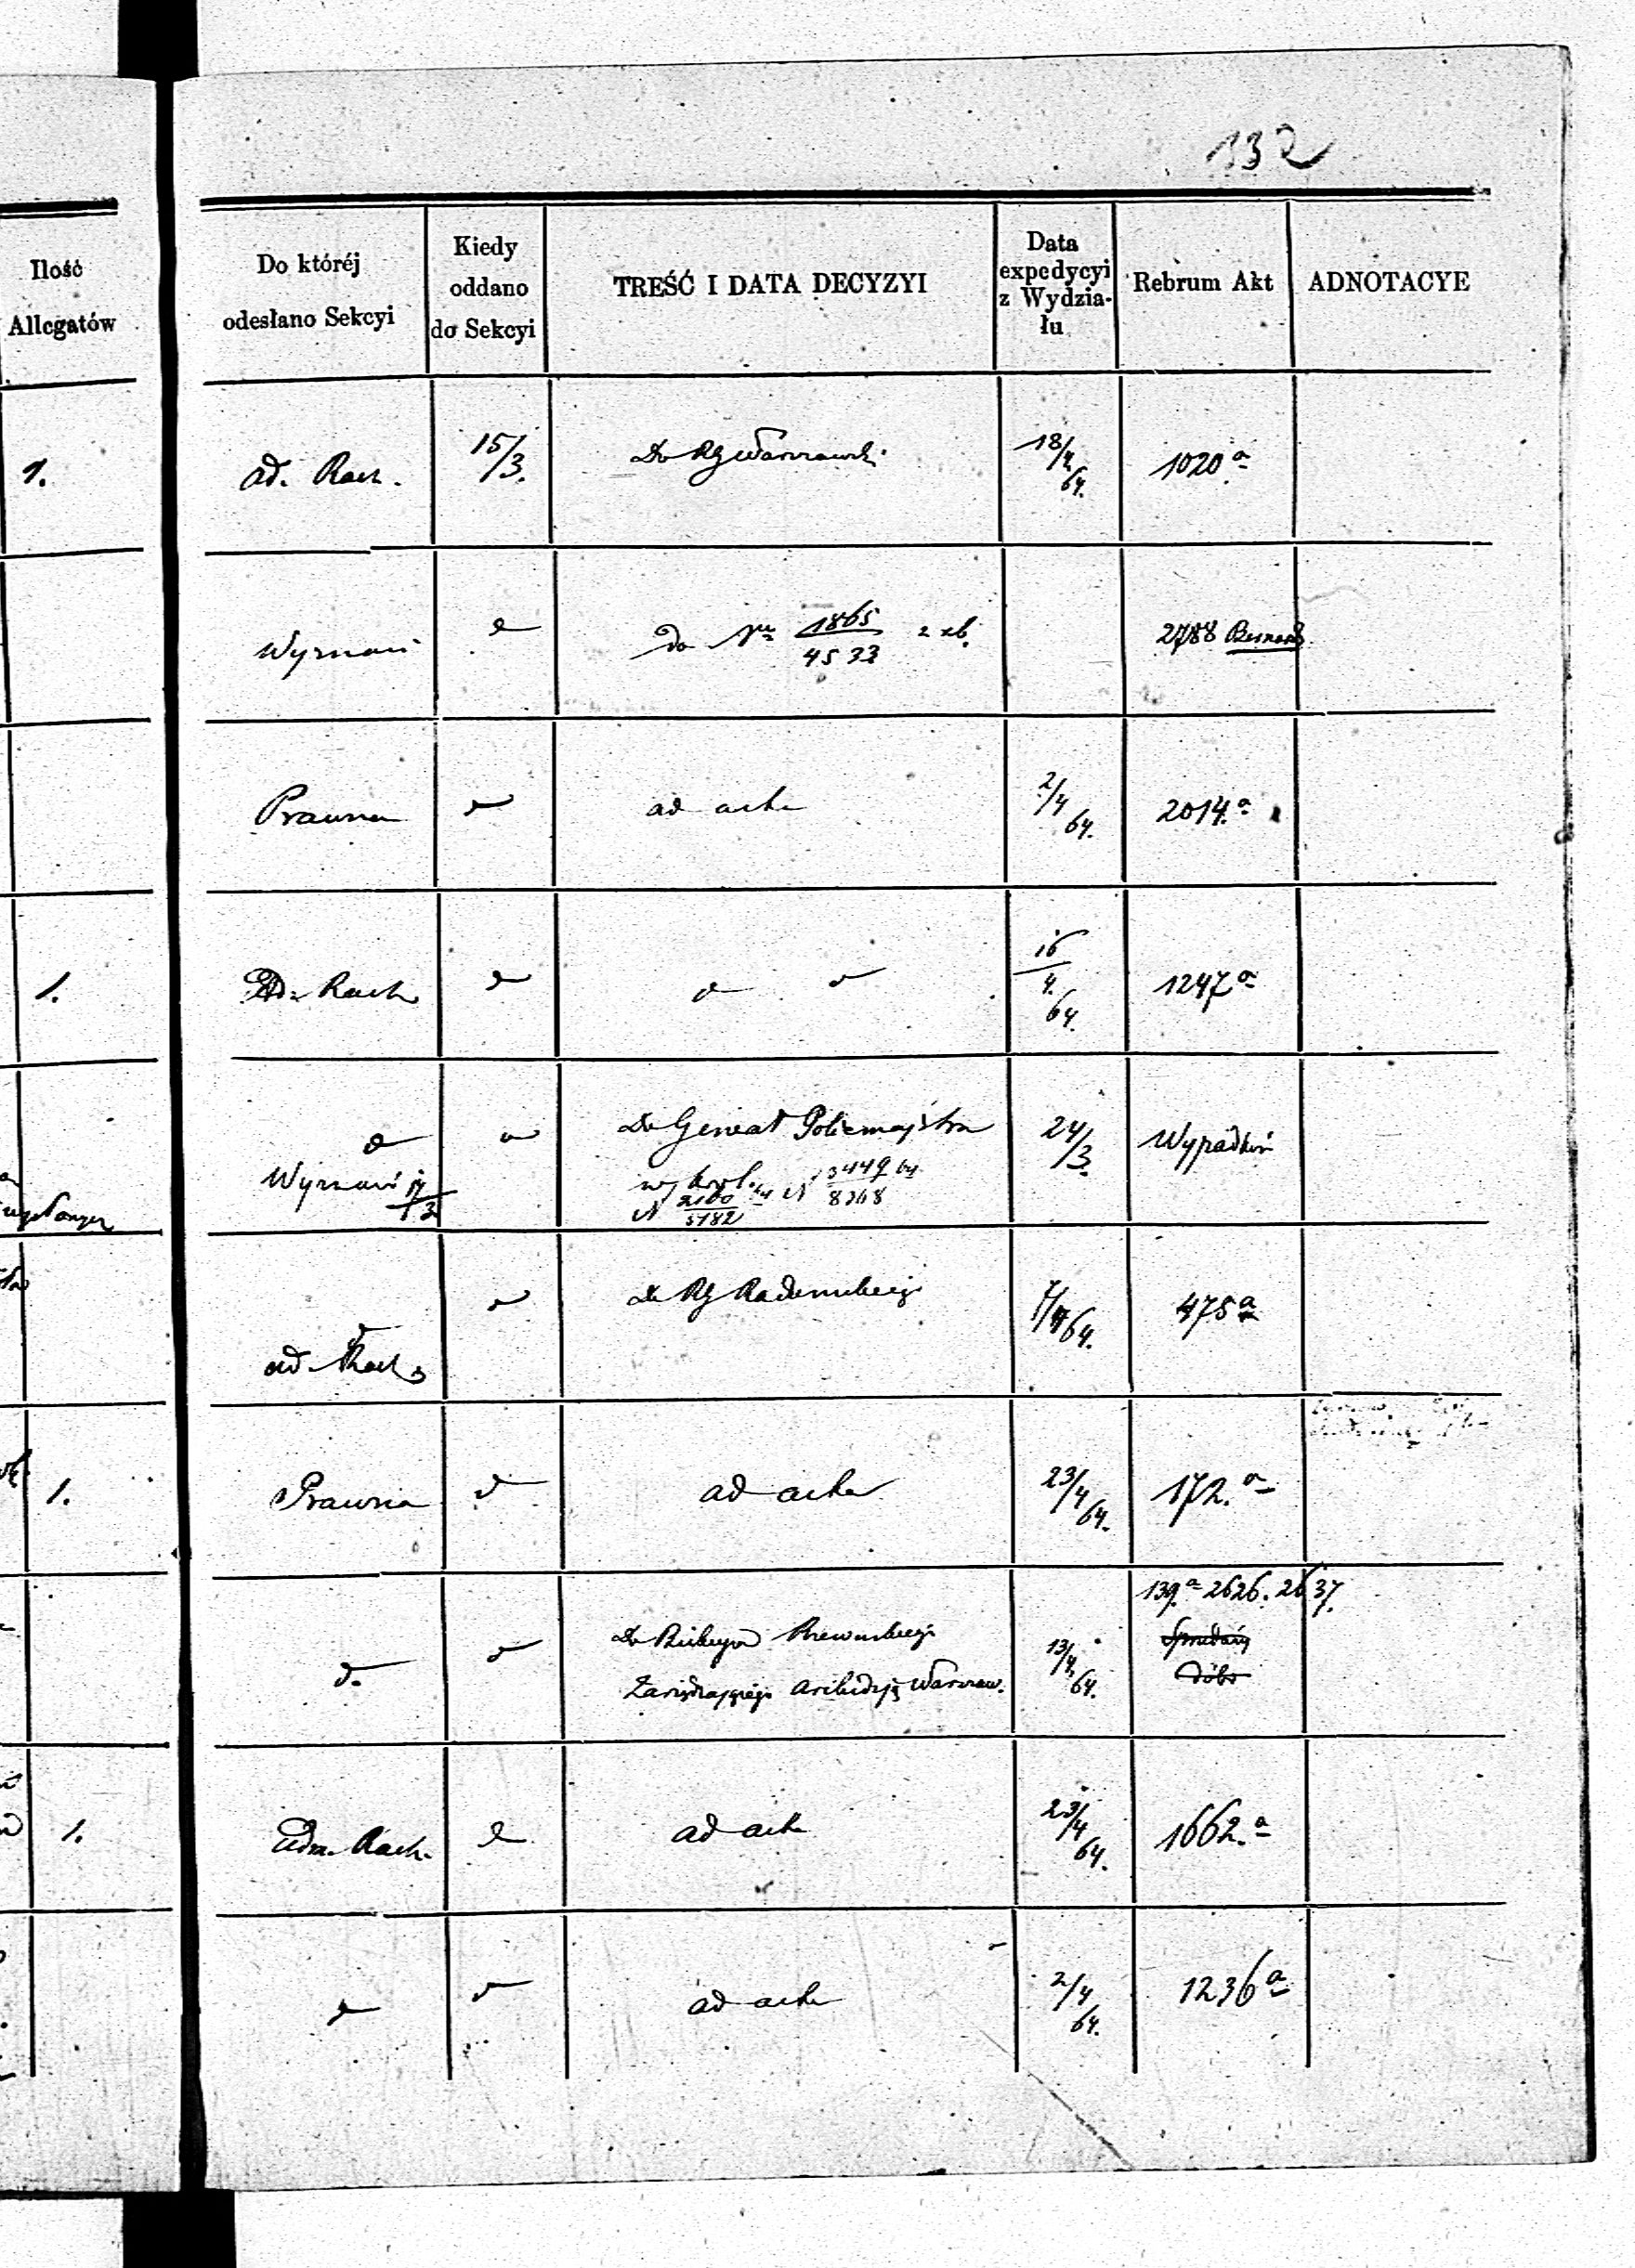 132
Ilość
Allegatów
Do któréj
odesłano Sekcyi
Kiedy
oddano
do Sekcyi
TREŚĆ I DATA DECYZYI
Data
expedycyi
z Wydzia-
łu
Rebrum Akt
ADNOTACYE
1.
Ad. Rach.
15/3.
Do RG Warszawsk.
18/4 64.
1020 a
Wyznań
do Nru 1865/4533 z rb.
2788
Prawna
ad acta
2/4 64.
2014. a
1.
Adm. Rach.
16/4. 64.
1247 a
Do Generał Policmajstra
24/3.
Wypadków
Wyznań 17/3
N 2160/5782 N 3449/8268
Do RG Radomskiego
7/4 64.
475 a
ad. Rach.
1.
Prawna
ad acta
23/4 64.
172. a
139. a 2626. 2637.
d.
Do Biskupa Rzewuskiego
Zarządzającego Archidyj Warszaw.
13/4 64.
Sprzedaży
Dóbr
1.
Adm. Rach.
ad acta
23/4 64.
1662. a
ad acta
2/4 64.
1236 a